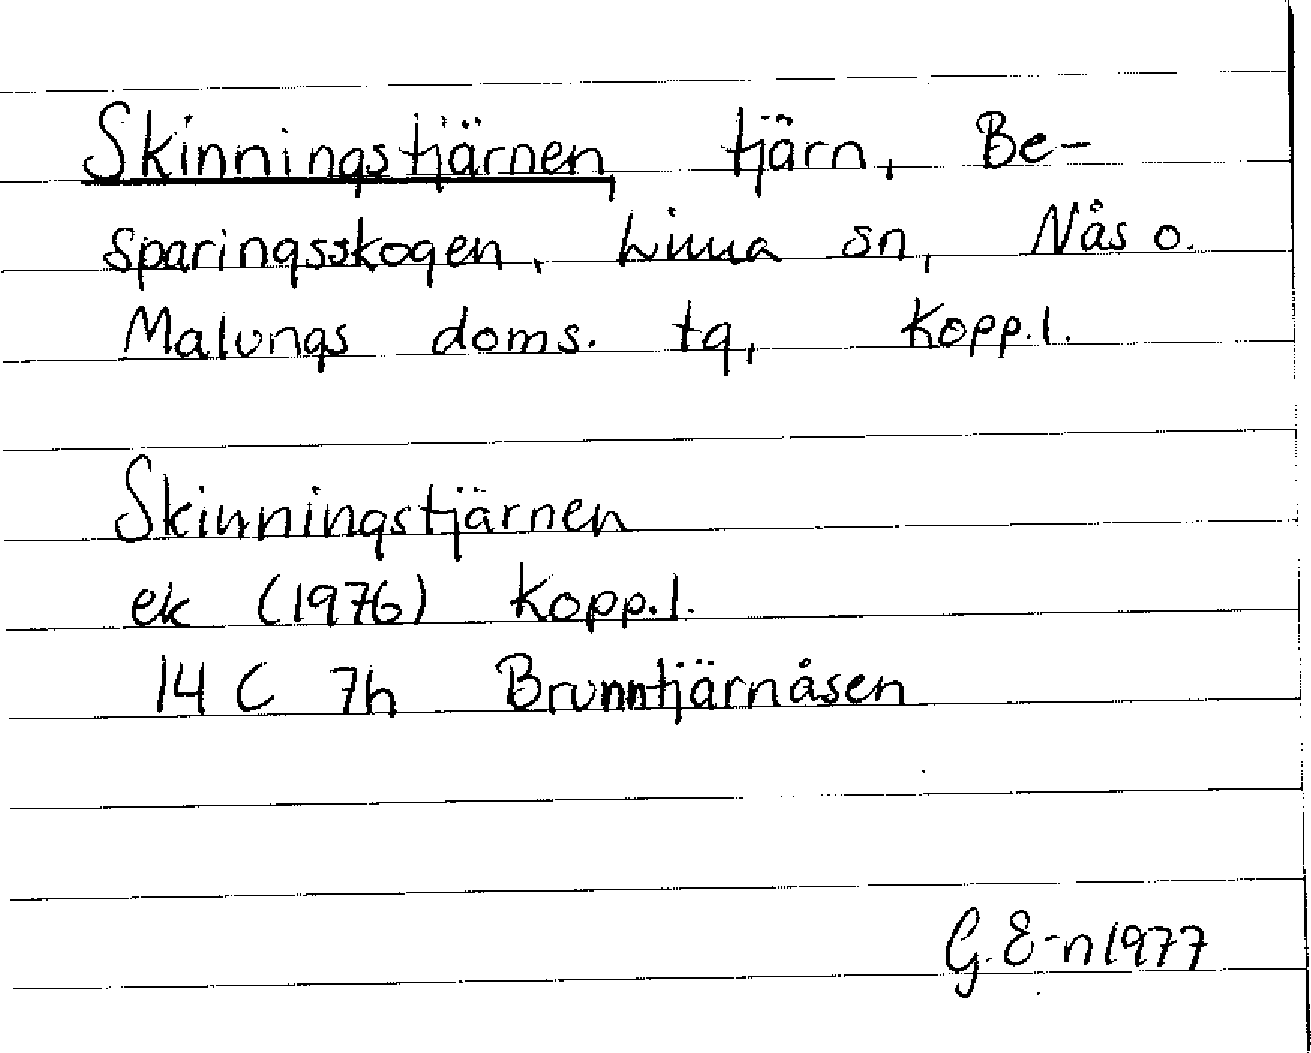 Skinningstjärnen, tjärn, Be-
sparingsskogen, Lima sn, Nås o.
Malungs doms. tg, Kopp.l.
Skinningstjärnen
ek (1976) Kopp.l.
14 C 7h Brunntjärnåsen
G.E-n 1977